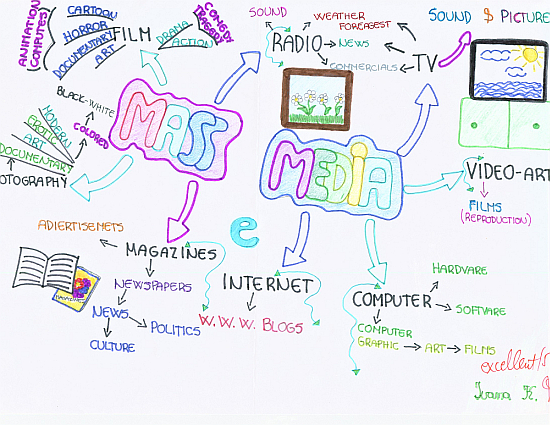 SOUND
WEATHER
FORECAST
SOUND $ PICTURE
CARTOON
COMEDY
TRAGEDY
FILM
DRAMA
ACTION
ANIMATION
COMPUTERS
HORROR
DOCUMENTARY
ART
RADIO
NEWS
COMMERCIALS
TV
BLACK-WHITE
COLORED
MODERN
EROTIC
ART
DOCUMENTARY
OTOGRAPHY
MASS
MEDIA
VIDEO-ART
FILMS
(REPRODUCTION)
ADIERTISEMETS
MAGAZINES
e
NEWSPAPERS
NEWS
POLITICS
CULTURE
INTERNET
W.W.W. BLOGS
HARDWARE
COMPUTER
SOFTWARE
COMPUTER
GRAPHIC
ART
FILMS
excellent/5
Ivana K.